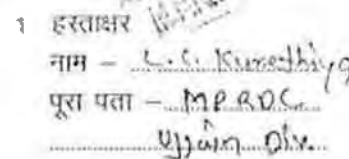 1 हस्ताक्षर
नाम – L. C. Kurothiya
पूरा पता – MPRDC
Ujjain Div.